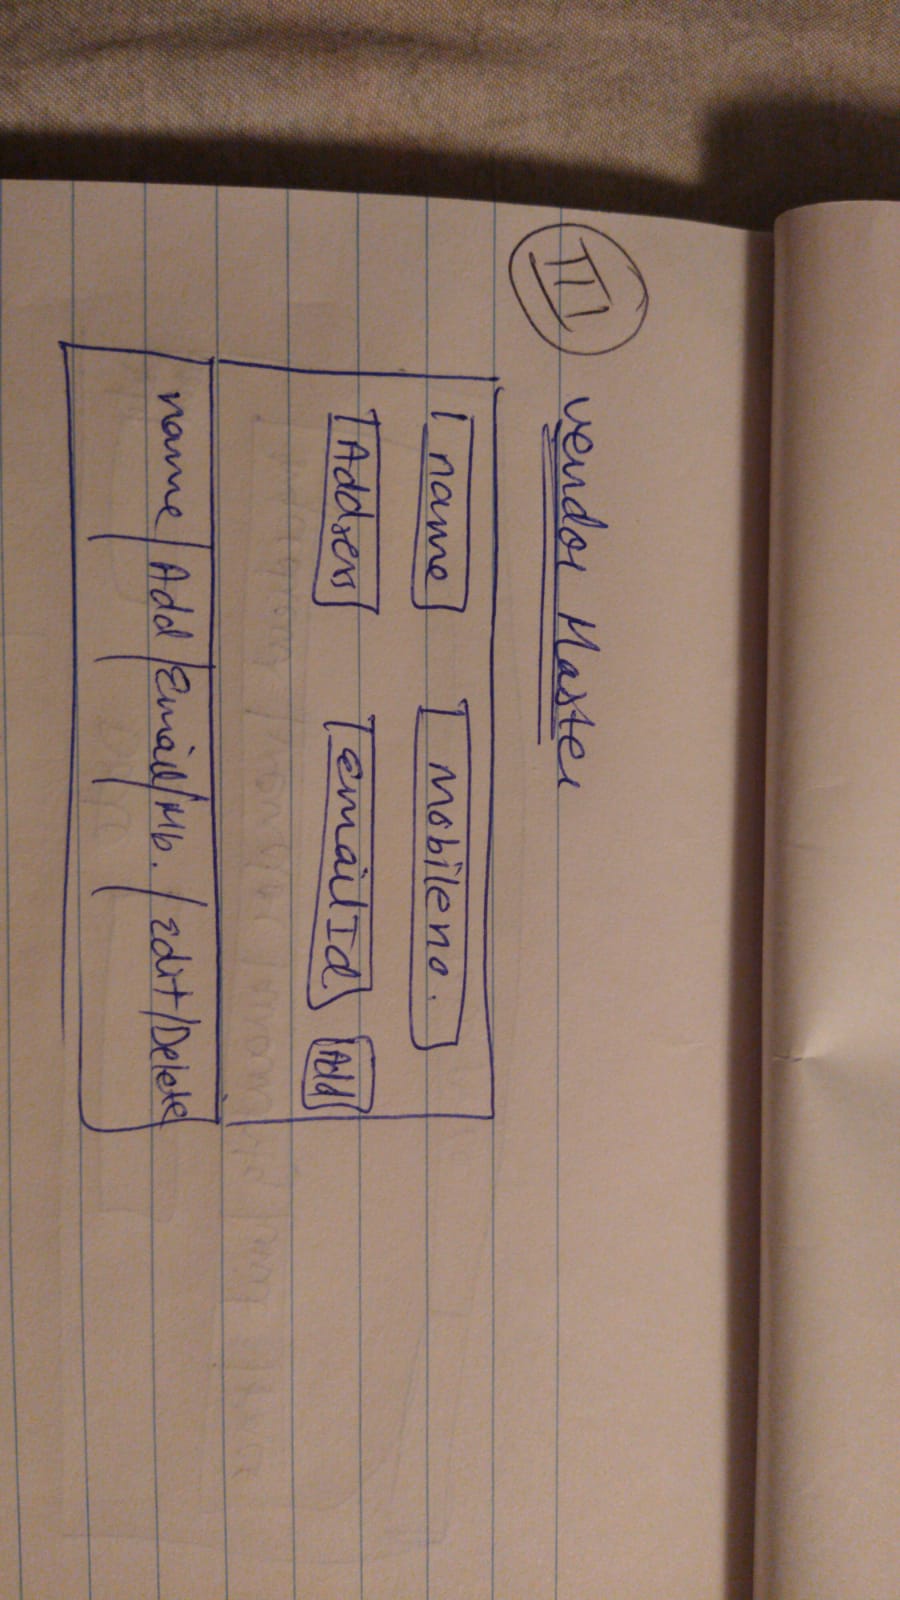 III vendor Master
name mobileno.
Address Email Id Add
name / Add / Email / Mb. / Edit / Delete